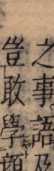 之事語及
豈敢學頭